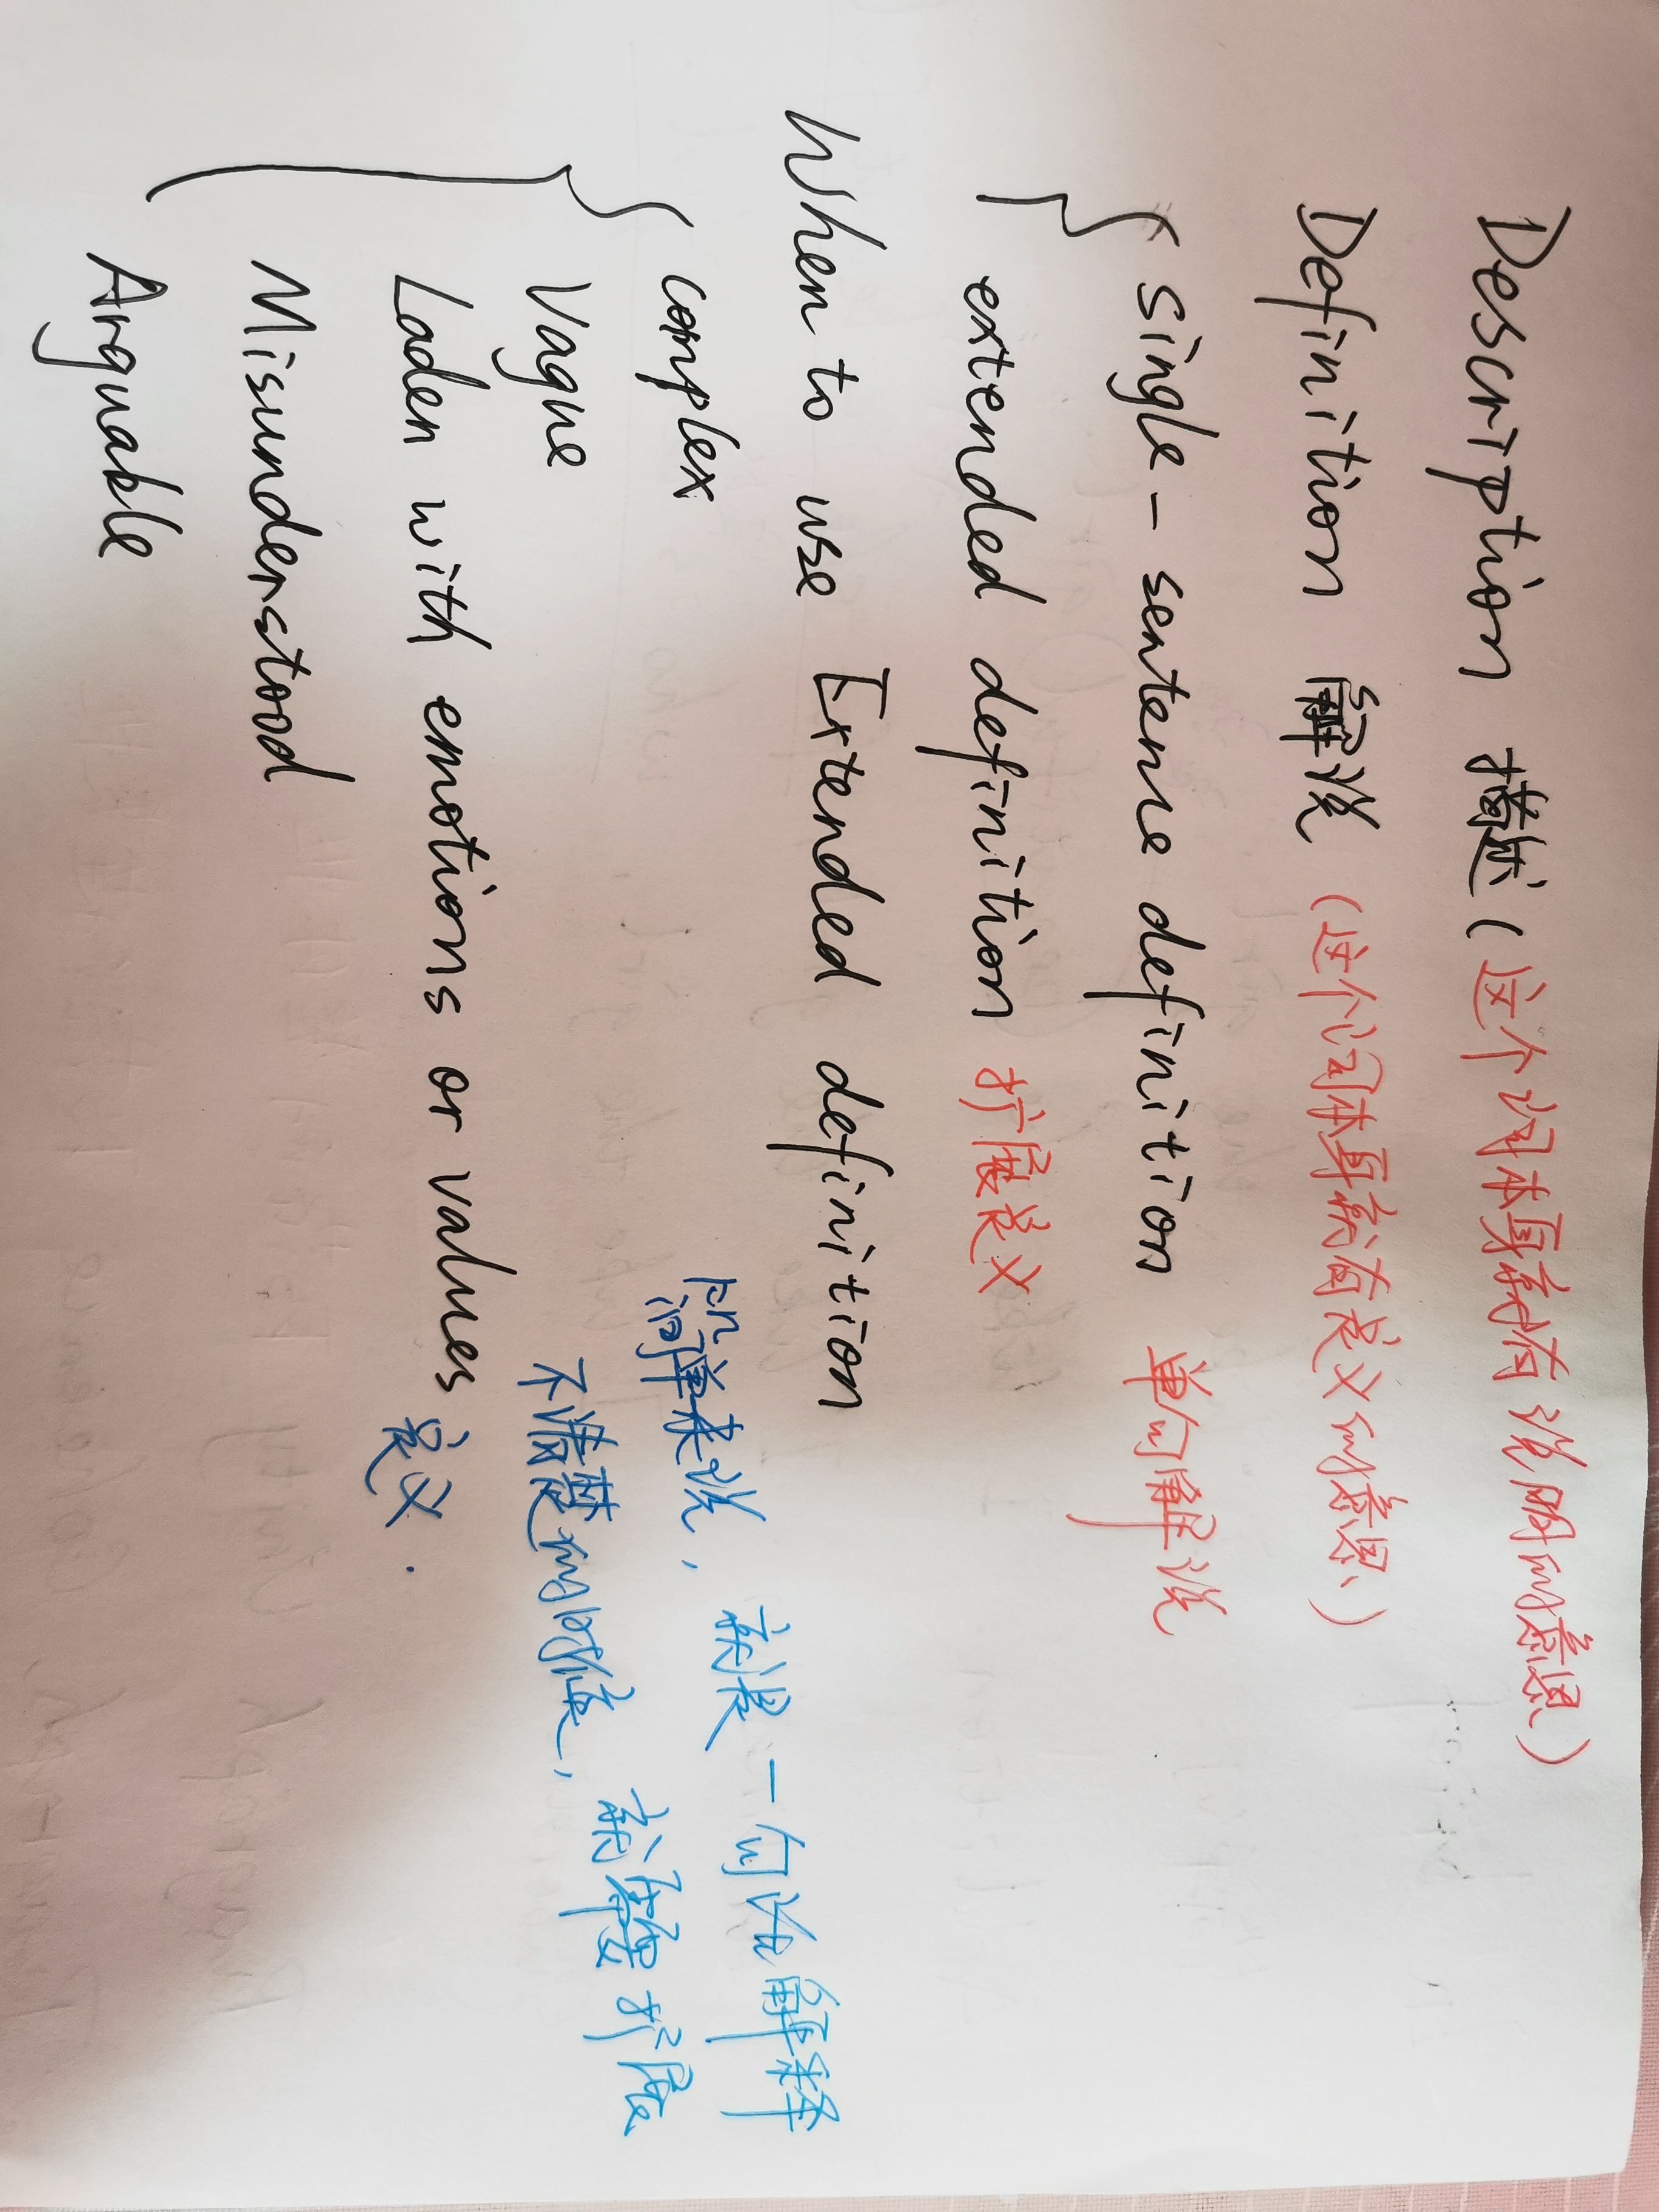 Description 描述(这个词本身就有说明的意思)
Definition 解说 (这个词本身就有定义的意思)
single-sentence definition 单句解说
extended definition 扩展定义
When to use Extended definition
complex
Vague
Laden with emotions or values
Misunderstood
Arguable
简单来说, 就是一句话解释
不清楚的时候, 就需要扩展
定义.